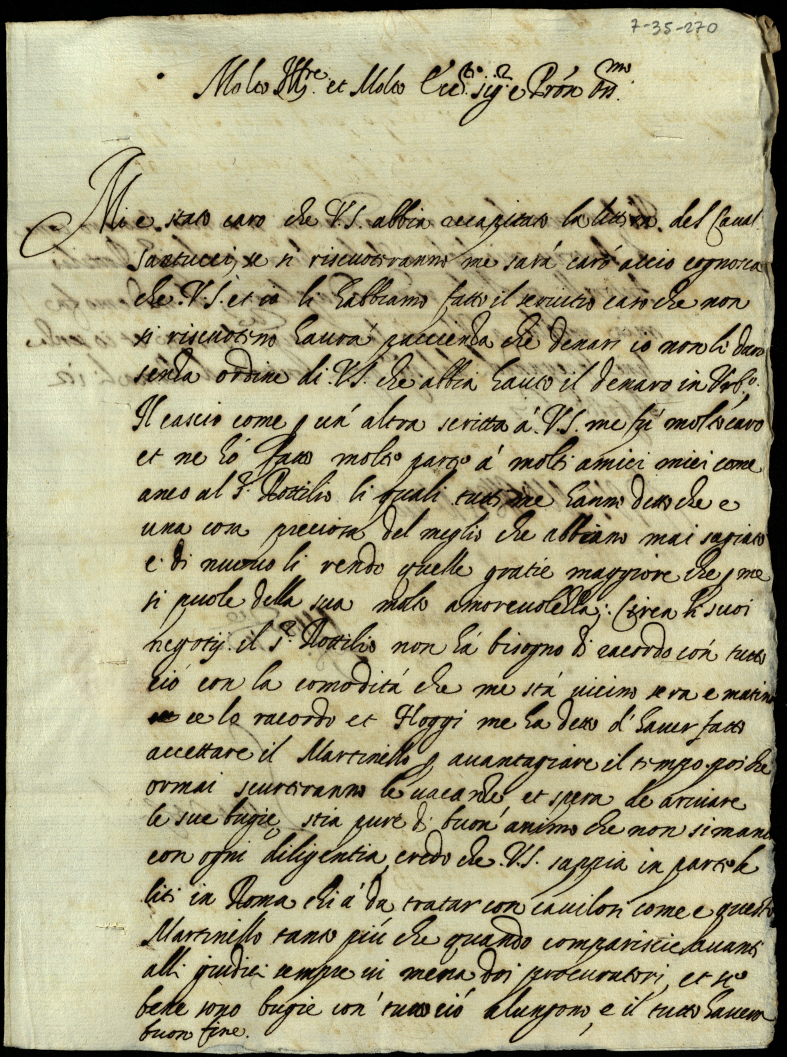 7-35-270
Molto Ill.re et Molto Ecc.te sig.r e Prón oss.mo
Mi e stato caro che V.S. abbia recapitato la littera del Caval
Santucci, se si riscuoteranno me sará caro accio cognosca
che V.S. et io li habbiamo fatto il servitio caso che non
si riscuotino haurá paccienza che denari io non li daro
senza ordine di V.S. che abbia hauto il denaro in Urb.o
Il cascio come p un' altra scritta á V.S. me fú molto caro
et ne hó fatto molte parte á molti amici miei come
anco al S.r Rottilio li quali tutti me hanno detto che e
una cosa preciosa del meglio che abbiano mai sagiato
e di nuouo li rendo quelle gratie maggiore che p me
si puole della sua molta amoreuolezza; Circa li suoi
negotij il S.r Rottilio non há bisogno di racordo con tutto
ció con la comoditá che me stá uicino sera e matina
ce lo racordo et Hoggi me ha detto d'hauer fatto
accettare il Martinello p auantagiare il tempo poi che
ormai scurtiranno le uacanze et spera de ariuare
le sue bugie, stia pure di buon' animo che non si manca
con ogni diligentia, credo che V.S. sappia in parte le
liti in Roma chi á da tratar con cauilosi come e questo
Martinello tanto piú che quando compariscie auanti
alli giudici sempre ui mena doi procuratori, et se
bene sono bugie con' tutto ció alungono, e il tutto hauera
buon fine.